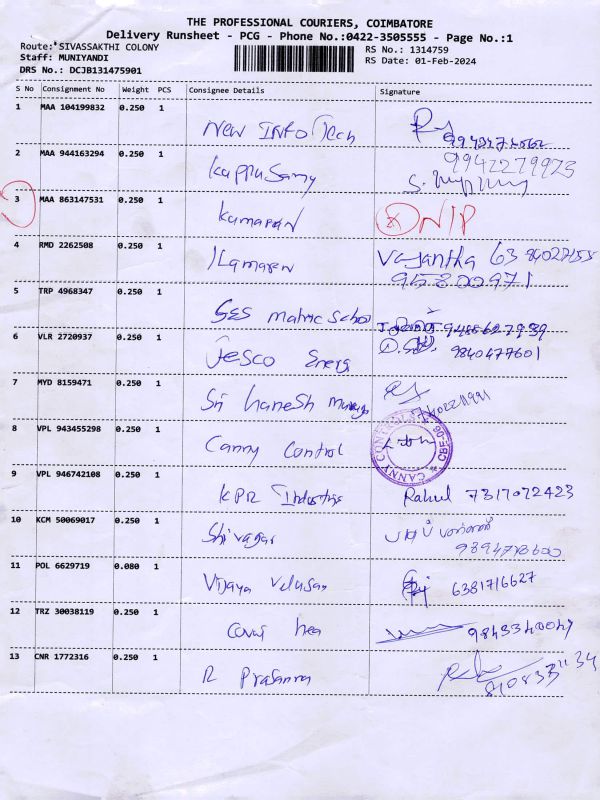 THE PROFESSIONAL COURIERS, COIMBATORE
Delivery Runsheet - PCG - Phone No.:0422-3505555 - Page No.:1
Route: SIVASSAKTHI COLONY
RS No.: 1314759
Staff: MUNIYANDI
RS Date: 01-Feb-2024
DRS No.: DCJB131475901
S No Consignment No Weight PCS Consignee Details Signature
1 MAA 104199832 0.250 1 New INFO Tech
2 MAA 944163294 0.250 1 Kuppusamy 9942279925
3 MAA 863147531 0.250 1 Kumaran N/P
4 RMD 2262508 0.250 1 Ilamaren Vasantha
5 TRP 4968347 0.250 1 SES matric School
6 VLR 2720937 0.250 1 Jesco Energi 9840477601
7 MYD 8159471 0.250 1 Sri Ganesh
8 VPL 943455298 0.250 1 Canny Control CANNY CONTROLS CBE-06
9 VPL 946742108 0.250 1 KPR Industries Rahul 7317072423
10 KCM 50069017 0.250 1 Shivagar
11 POL 6629719 0.080 1 Vijaya Velusam 6381716627
12 TRZ 30038119 0.250 1
13 CNR 1772316 0.250 1 R Prasanna